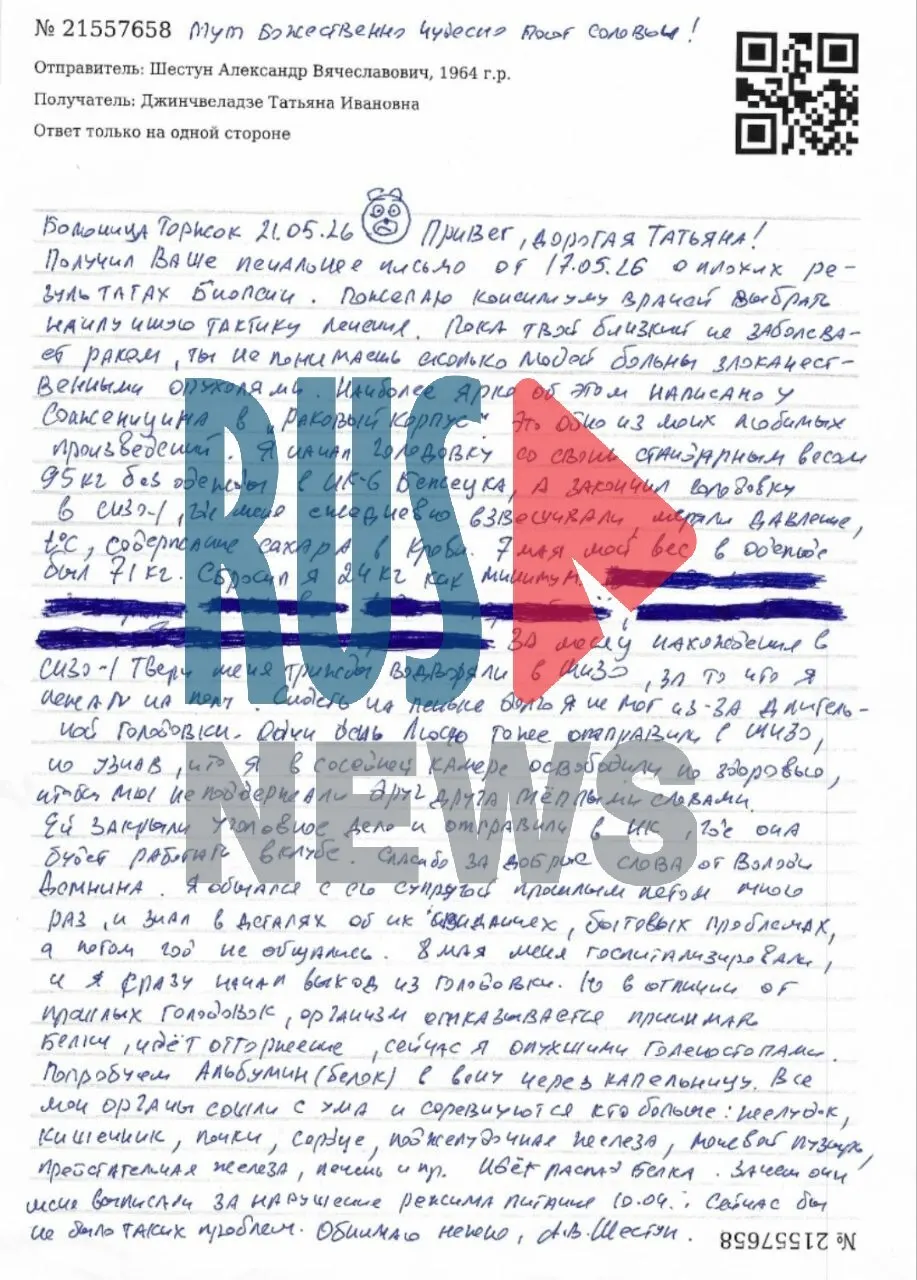 № 21557658 Тут Божественно чудесно поют соловьи!
Отправитель: Шестун Александр Вячеславович, 1964 г.р.
Получатель: Джинчвеладзе Татьяна Ивановна
Ответ только на одной стороне
Больница Торжок 21.05.26 Привет, дорогая Татьяна!
Получил Ваше печальное письмо от 17.05.26 о плохих ре-
зультатах биопсии. Пожелаю консилиуму врачей выбрать
наилучшую тактику лечения. Пока твой близкий не заболева-
ет раком, ты не понимаешь сколько людей больны злокачест-
венными опухолями. Наиболее ярко об этом написано у
Солженицина в "Раковый корпус". Это одно из моих любимых
произведений. Я начал голодовку со своим стандарным весом
95 кг без одежды в ИК-6 Бежецка, а закончил голодовку
в СИЗО-1, где меня ежедневно взвешивали, меряли давление,
t°C, содержание сахара в крови. 7 мая мой вес в одежде
был 71 кг. Сбросил я 24 кг как минимум.
За месяц нахождения в
СИЗО-1 Твери меня трижды водворяли в ШИЗО, за то что я
лежал на полу. Сидеть на пеньке долго я не мог из-за длитель-
ной голодовки. Один день Люсю тоже отправили в ШИЗО,
но узнав, что я в соседней камере освободили по здоровью,
чтобы мы не поддержали друг друга тёплыми словами.
Ей закрыли уголовное дело и отправили в ИК, где она
будет работать в клубе. Спасибо за добрые слова от Володи
Домнина. Я общался с его супругой прошлым летом много
раз, и знал в деталях об их свиданиях, бытовых проблемах,
а потом год не общались. 8 мая меня госпитализировали,
и я сразу начал выход из голодовки. Но в отличии от
прошлых голодовок, организм отказывается принимать
белки, идёт отторжение, сейчас я опухшими голеностопами.
Попробуем Альбумин (белок) в вену через капельницу. Все
мои органы сошли с ума и соревнуются кто больше: желудок,
кишечник, почки, сердце, поджелудочная железа, мочевой пузырь,
предстательная железа, печень и пр. Идёт распад белка. Зачем они
меня выписали за нарушение режима питания 10.04. Сейчас бы
не было таких проблем. Обнимаю нежно, А.В. Шестун.
№ 21557658
RUS
NEWS